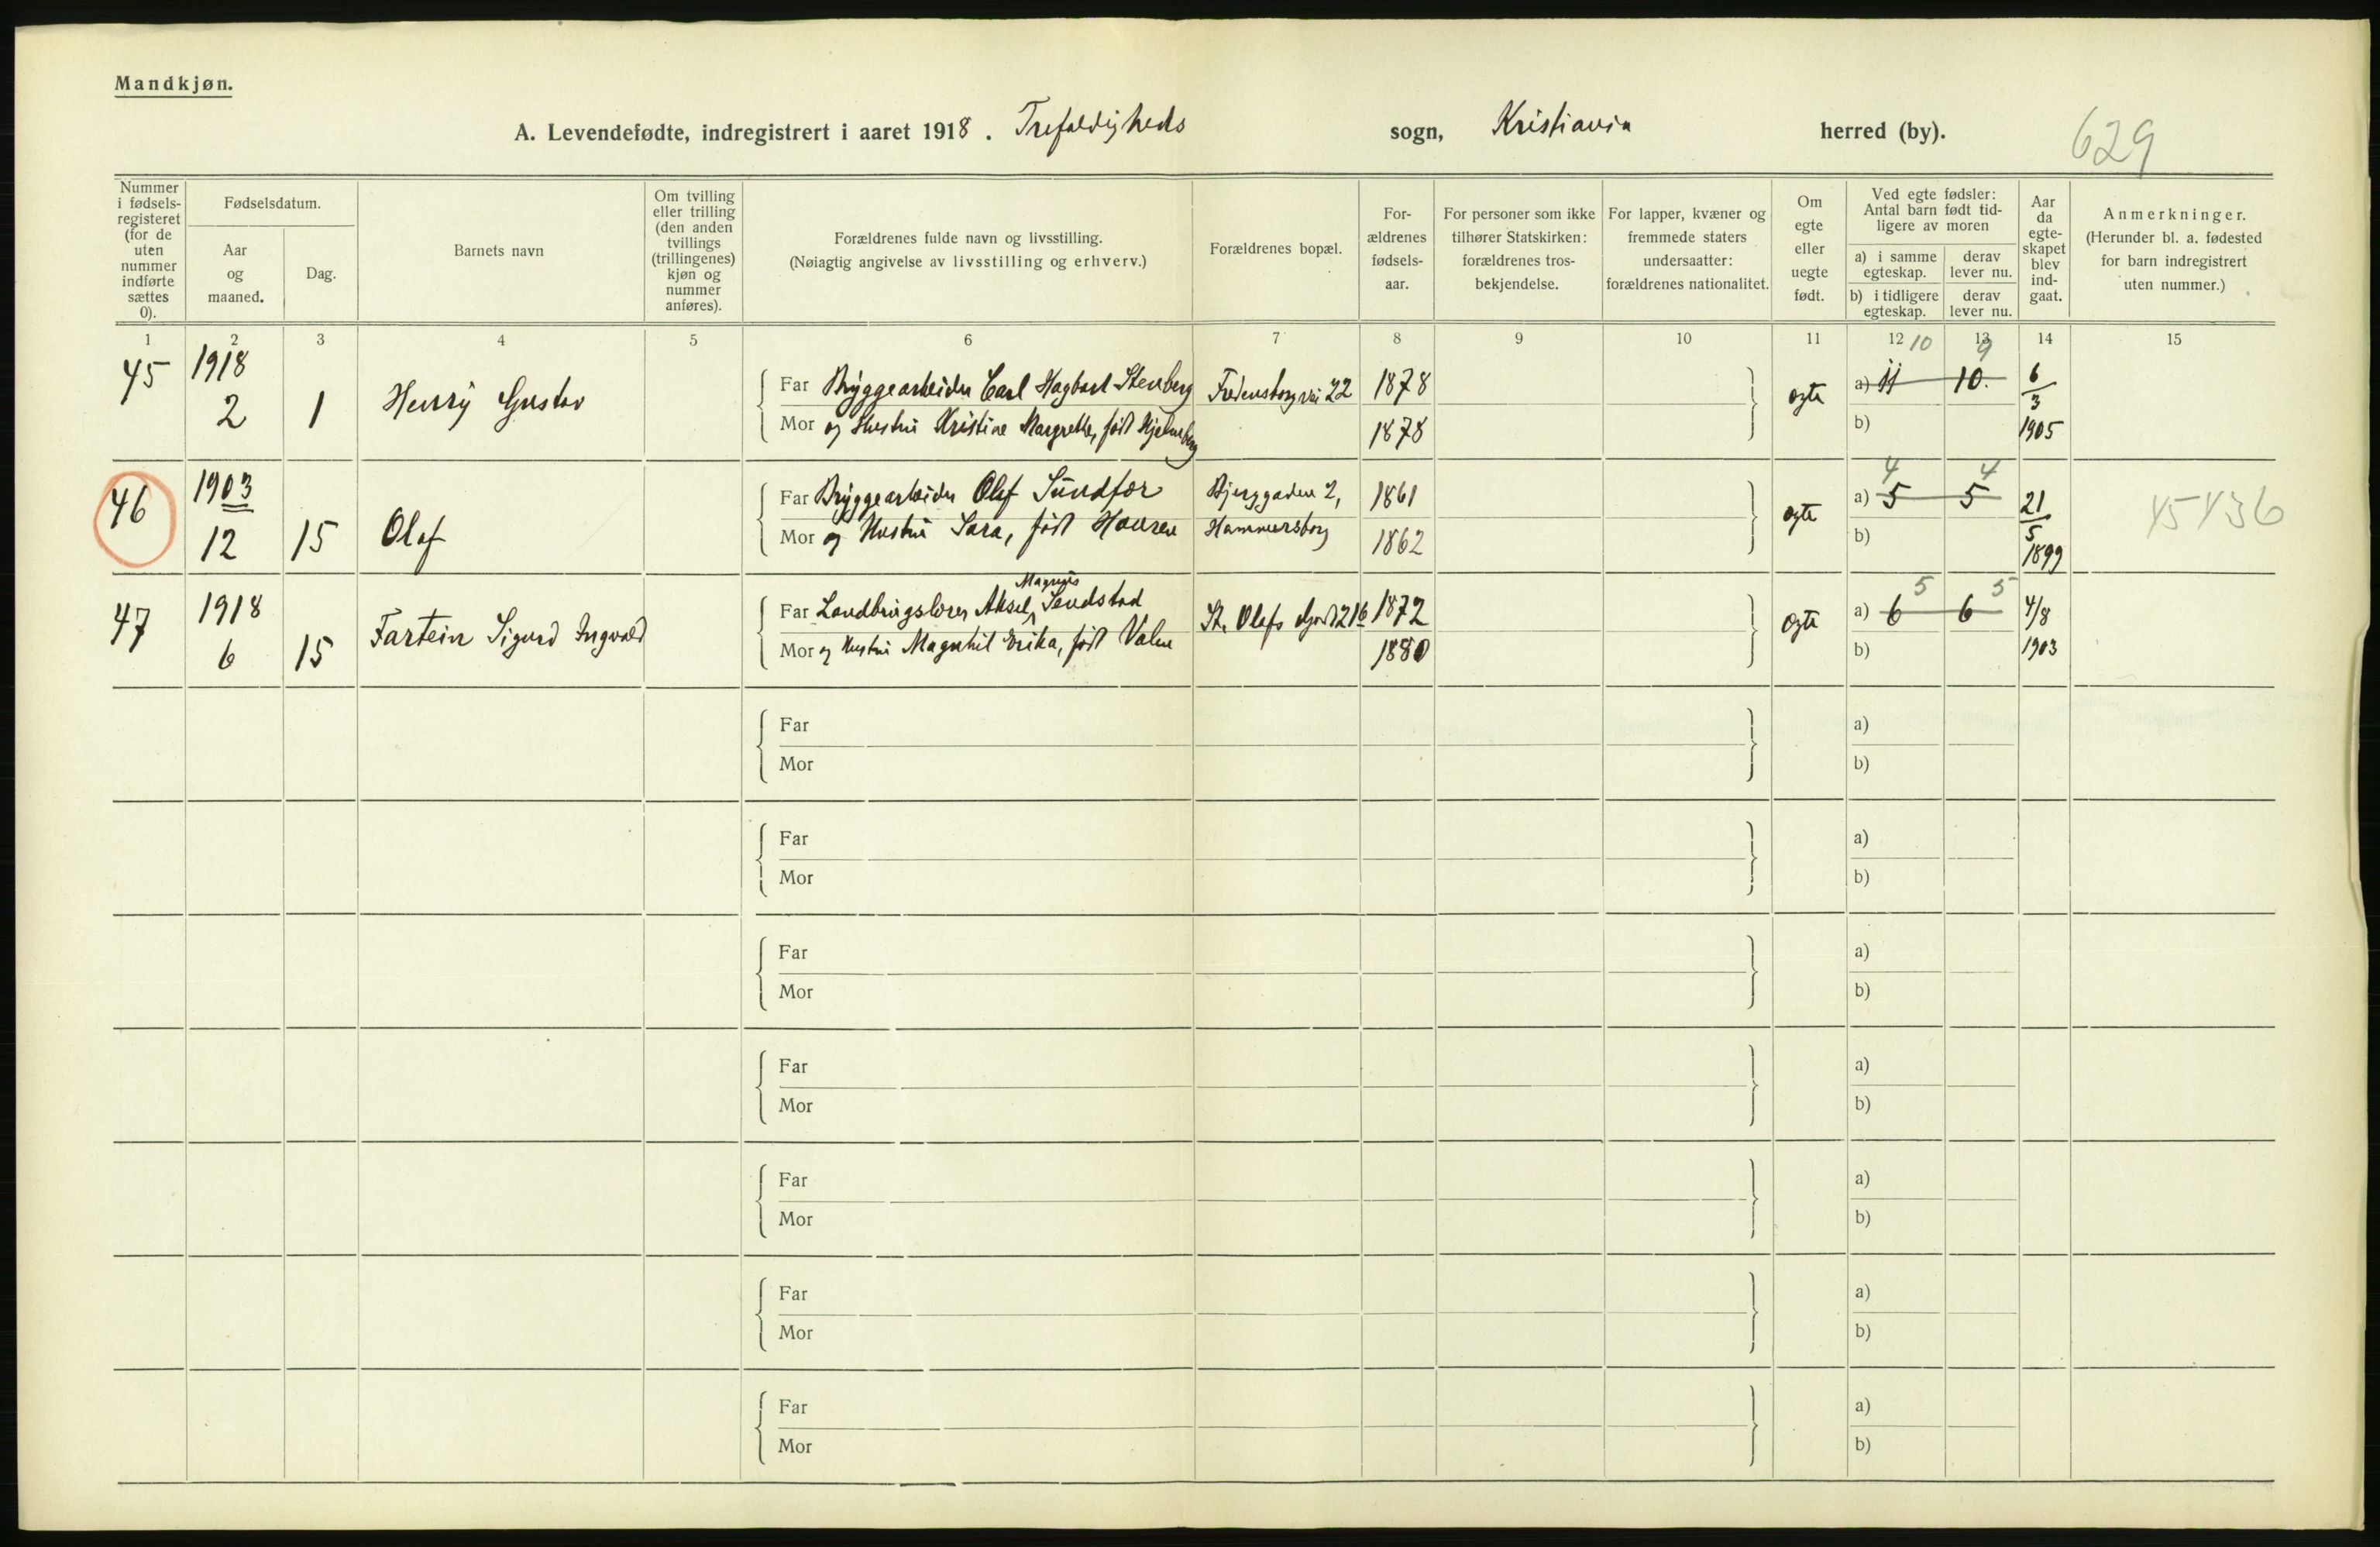 Mandkjøn.
A. Levendefødte, indregistrert i aaret 1918. Trefoldigheds sogn, Kristiania herred (by). 629
Nummer i fødsels-registeret (for de uten nummer indførte sættes 0).
Fødselsdatum.
Aar og maaned.
Dag.
Barnets navn
Om tvilling eller trilling (den anden tvillings (trillingenes) kjøn og nummer anføres).
Forældrenes fulde navn og livsstilling.
(Nøiagtig angivelse av livsstilling og erhverv.)
Forældrenes bopæl.
For-ældrenes fødsels-aar.
For personer som ikke tilhører Statskirken: forældrenes tros-bekjendelse.
For lapper, kvæner og fremmede staters undersaatter: forældrenes nationalitet.
Om egte eller uegte født.
Ved egte fødsler: Antal barn født tid-ligere av moren
a) i samme egteskap.
derav lever nu.
b) i tidligere egteskap.
derav lever nu.
Aar da egte-skapet blev ind-gaat.
Anmerkninger.
(Herunder bl. a. fødested for barn indregistrert uten nummer.)
1 2 3 4 5 6 7 8 9 10 11 12 13 14 15
45 1918 2 1 Henry Gustav
Far Bryggearbeider Carl Hagbart Stenberg Fredensborgvei 22 1878
Mor og Hustru Kristine Margrethe, født 1878
egte a) 11 10. 10 9 b) 6/3 1905
46 1903 12 15 Olaf
Far Bryggearbeider Olaf Sundfør Bjerggaden 2, 1861
Mor og Hustru Sara, født Hammersborg 1862
egte a) 5 5 4 4 b) 21/5 1899 45436
47 1918 6 15 Tartein Sigurd Ingvald
Far Aksel Magnus Sendstad St. Olafs 1872
Mor og Hustru Magnhil Erika, født 1880
egte a) 6 6 5 5 b) 4/8 1903
Far a)
Mor b)
Far a)
Mor b)
Far a)
Mor b)
Far a)
Mor b)
Far a)
Mor b)
Far a)
Mor b)
Far a)
Mor b)